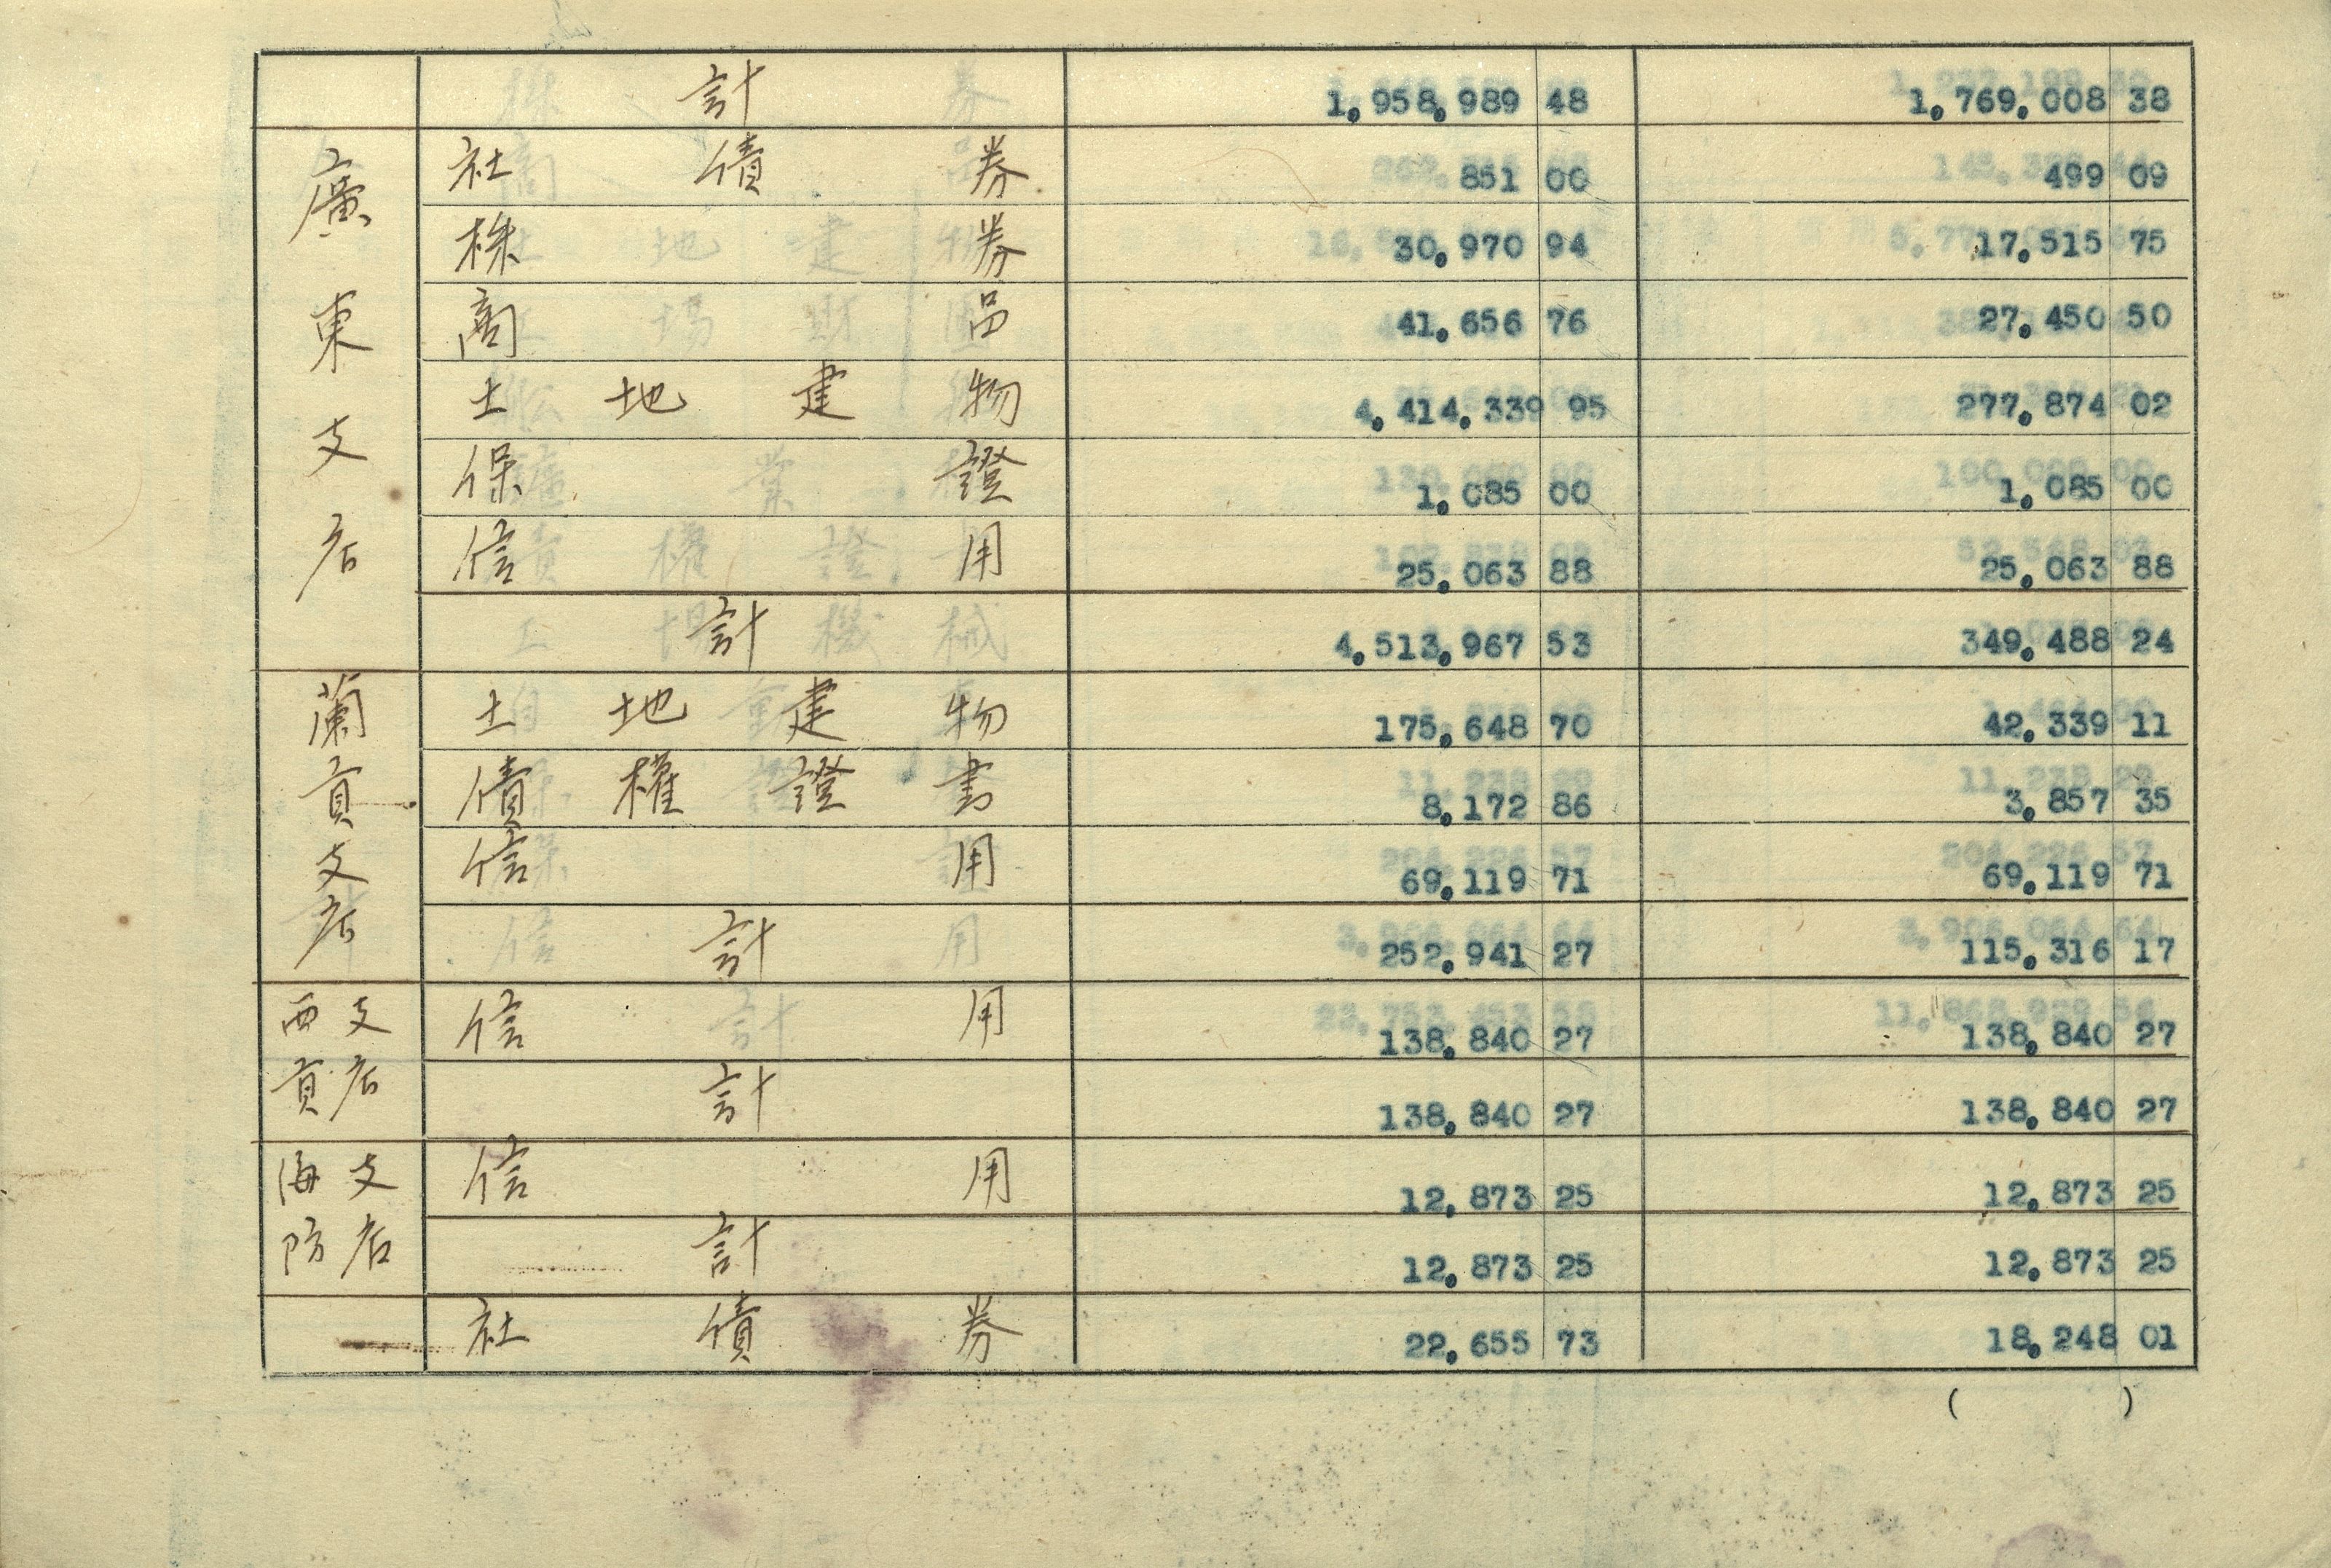 計 1,958,989 48 1,769,008 38
廣東支店 社債券 851 00 499 09
株券 30,970 94 17,515 75
商品 41,656 76 27,450 50
土地建物 4,414,339 95 277,874 02
保證 1,085 00 1,085 00
信用 25,063 88 25,063 88
計 4,513,967 53 349,488 24
蘭貢支店 土地建物 175,648 70 42,339 11
債權證書 8,172 86 3,857 35
信用 69,119 71 69,119 71
計 252,941 27 115,316 17
西貢支店 信用 138,840 27 138,840 27
計 138,840 27 138,840 27
海防支店 信用 12,873 25 12,873 25
計 12,873 25 12,873 25
社債券 22,655 73 18,248 01
( )